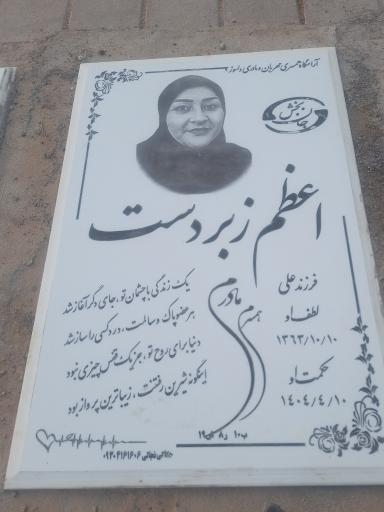 آرامگاه همسری مهربان و مادری دلسوز
جان بخش
اعظم زبردست
فرزند علی
لطف او
۱۳۶۳/۱۰/۱۰
حکمت او
۱۴۰۴/۴/۱۰
همسرم مادرم
یک زندگی با چشمان تو، جای دگر آغاز شد
هر عضو پاک و سالمت، درد کسی را ساز شد
دنیا برای روح تو، جز یک قفس چیزی نبود
اینگونه شیرین رفتنت، زیباترین پرواز بود
ب۱۰ ر۸ ش۱۹
۰۹۲۰۴۱۶۱۶۰۶